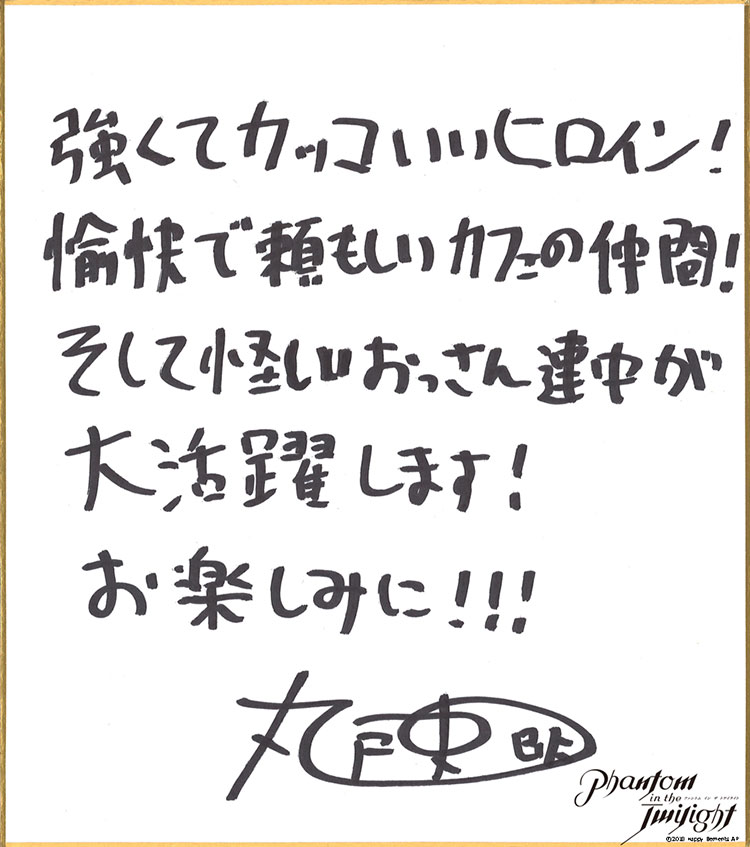 強くてカッコいいヒロイン!
愉快で頼もしいカフェの仲間!
そして怪しいおっさん連中が
大活躍します!
お楽しみに!!!
丸戸史明
Phantom
in the
ファントム イン ザ トワイライト
Twilight
©2018 Happy Elements AP